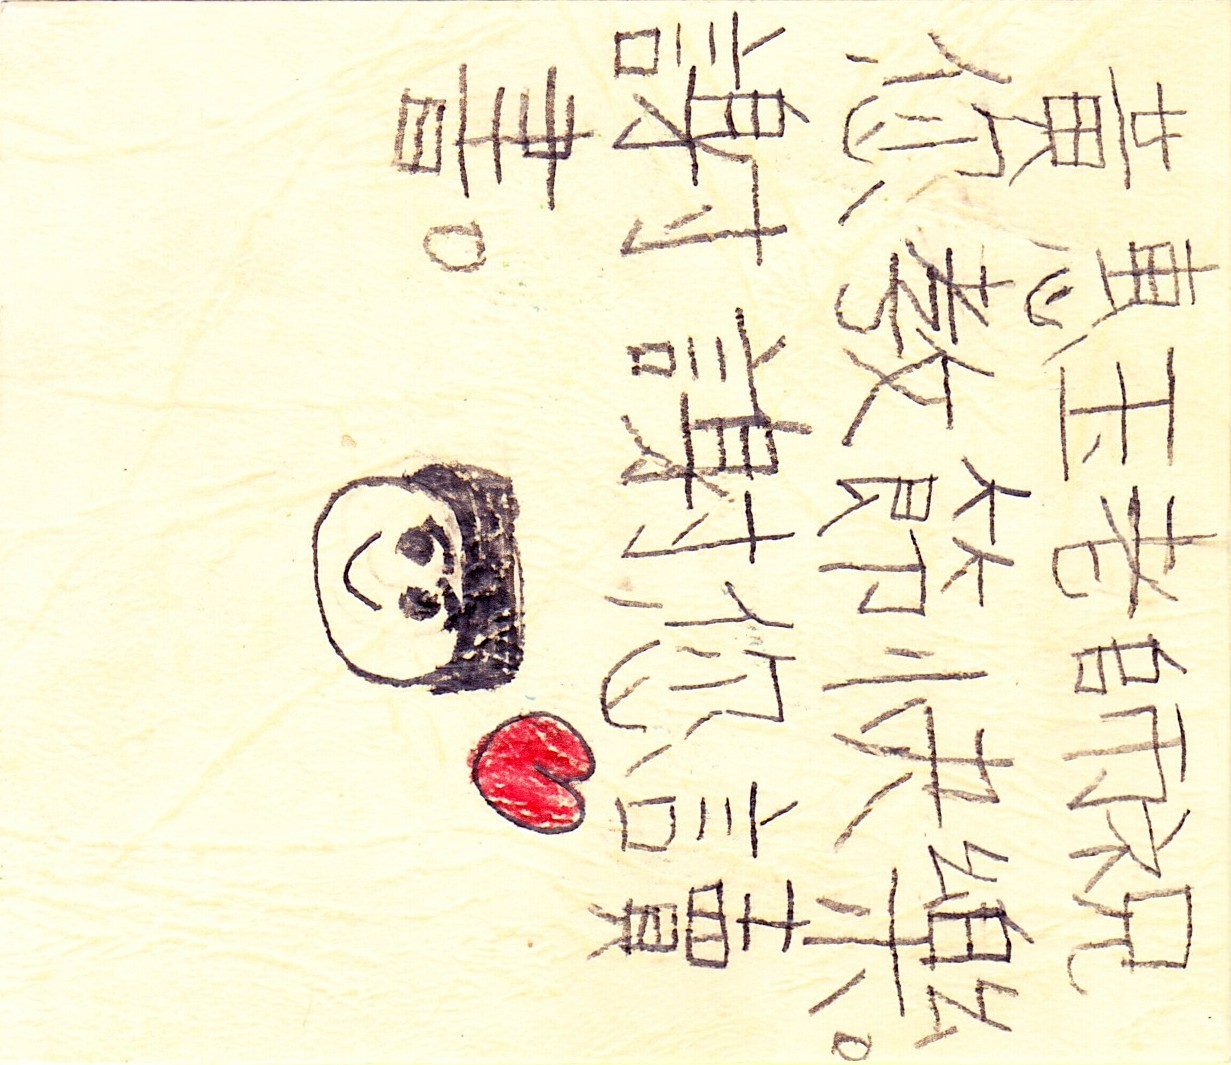 黃惠玉老師祝
您教節快樂。
謝謝您讀
書。